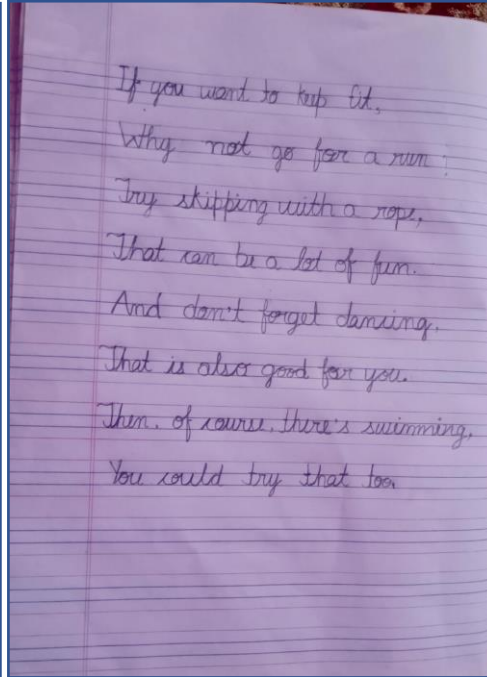 If you want to keep fit,
Why not go for a run :
Try skipping with a rope,
That can be a lot of fun.
And don't forget dancing.
That is also good for you.
Then, of course, there's swimming,
You could try that too.